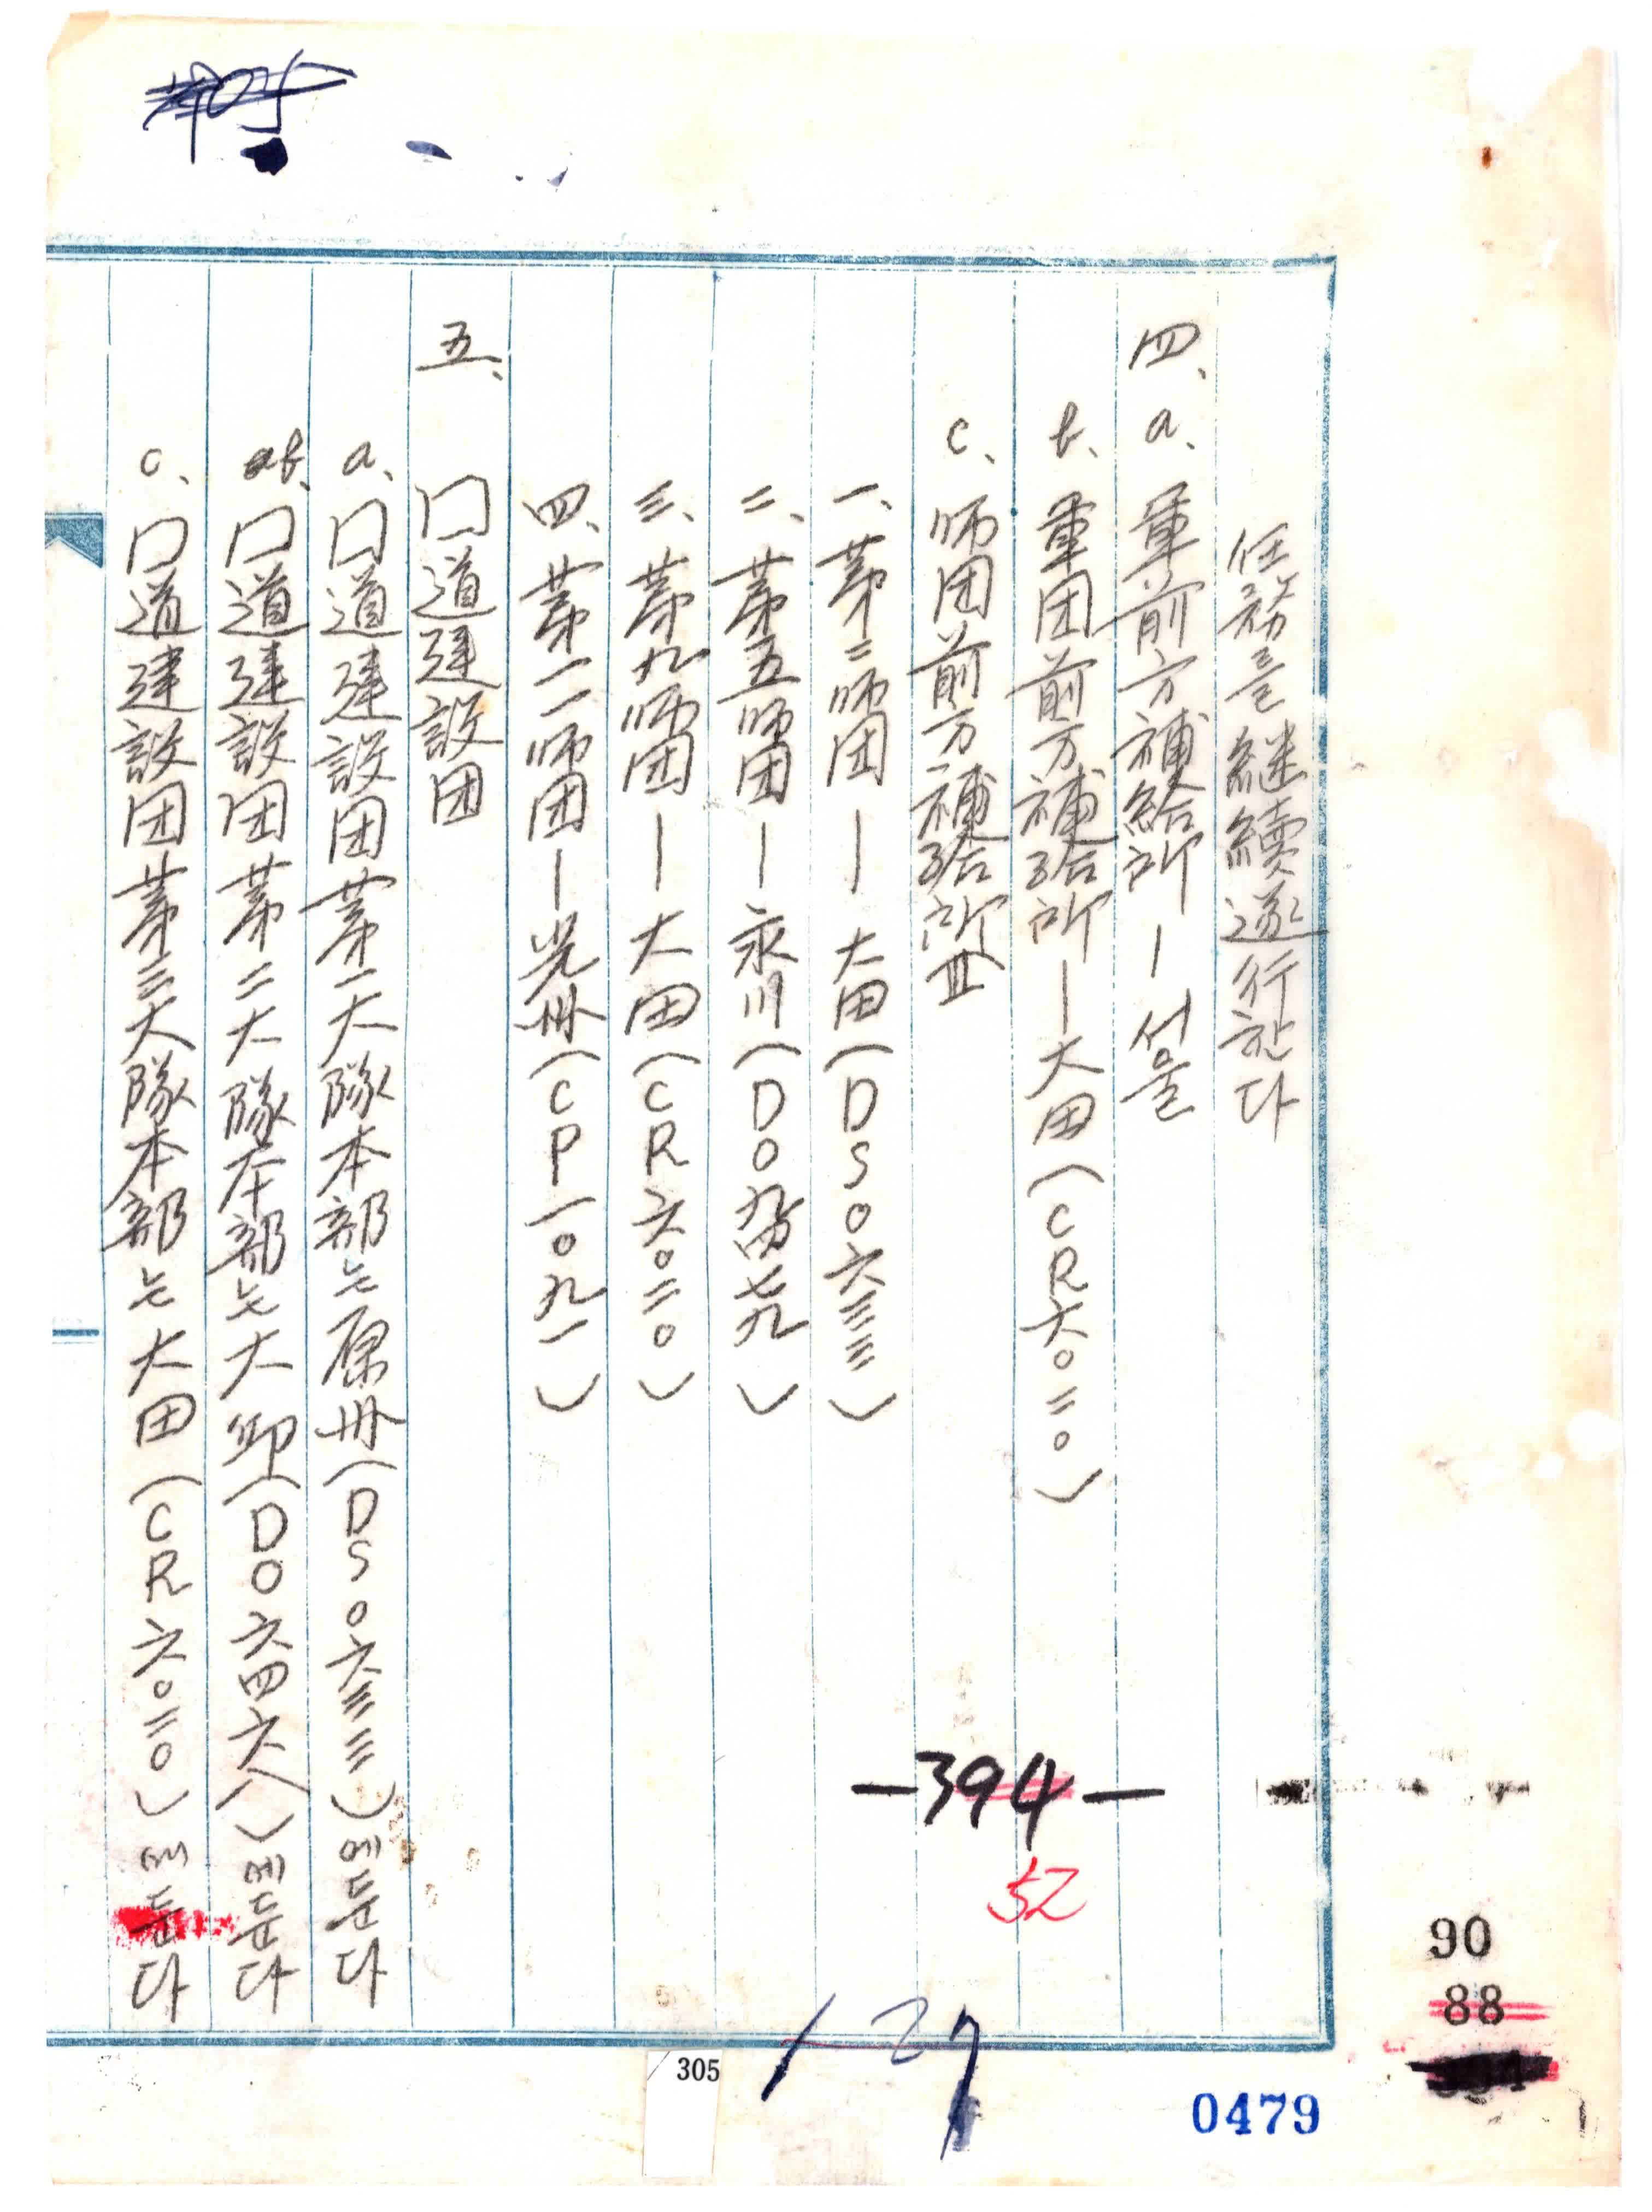 任務를 継續遂行한다
四、a、軍前方補給所 — 서울
b、軍团前方補給所 — 大田(CR六〇二〇)
c、师团前方補給所
一、第二师团 — 大田(DS〇六三三)
二、第五师团 — 永川(DO 七九)
三、第九师团 — 大田(CR六〇二〇)
四、第一一师团 — 光州(CP一〇九一)
五、口道建設团
a、口道建設团第一大隊本部는原州(DS〇六三三)에둔다
b、口道建設团第二大隊本部는大邱(DO六四六八)에둔다
c、口道建設团第三大隊本部는大田(CR六〇二〇)에둔다
—394—
52
90
88
127
305
0479